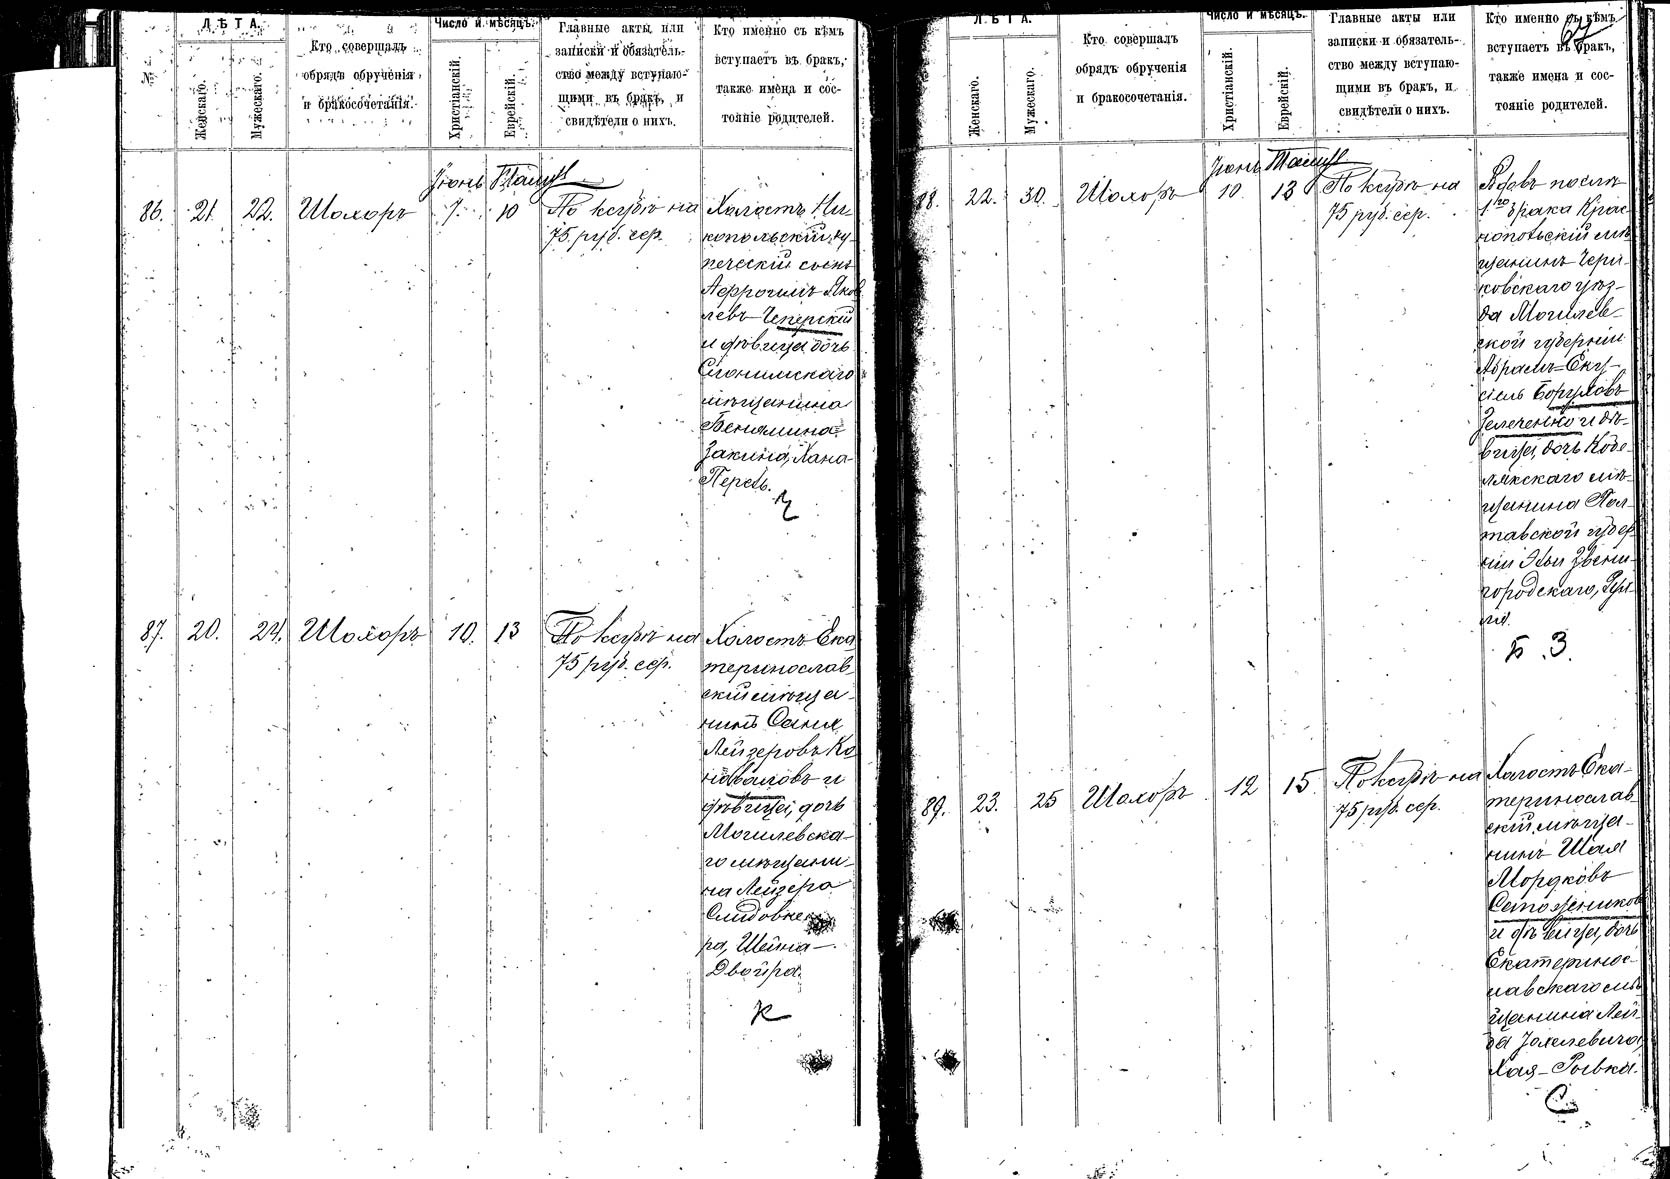 №
ЛѢТА.
Женскаго.
Мужескаго.
Кто совершалъ
обрядъ обрученія
и бракосочетанія.
Число и мѣсяцъ.
Христіанскій.
Еврейскій.
Главные акты или
записки и обязатель-
ство между вступаю-
щими въ бракъ, и
свидѣтели о нихъ.
Кто именно съ кѣмъ
вступаетъ въ бракъ,
также имена и сос-
тояніе родителей.
Іюнь Тамузъ
86. 21. 22. Шохоръ 7. 10
По ксубѣ на
75 руб. сер.
Холостъ Ни-
копольскій ку-
печескій сынъ
Афроимъ Яков-
левъ Чеперскій
и дѣвица дочь
Слонимскаго
мѣщанина
Бенямина
Закина, Хана-
Песь.
Ч
87. 20. 24. Шохоръ 10. 13
По ксубѣ на
75 руб. сер.
Холостъ Ека-
теринослав-
скій мѣща-
нинъ Саня
Лейзеровъ Ко-
новаловъ и
дѣвица, дочь
Могилевска-
го мѣщани-
на Лейзера
ра, Шейна-
Двойра.
К
67
ЛѢТА.
Женскаго.
Мужескаго.
Кто совершалъ
обрядъ обрученія
и бракосочетанія.
Число и мѣсяцъ.
Христіанскій.
Еврейскій.
Главные акты или
записки и обязатель-
ство между вступаю-
щими въ бракъ, и
свидѣтели о нихъ.
Кто именно съ кѣмъ
вступаетъ въ бракъ,
также имена и сос-
тояніе родителей.
Іюнь Тамузъ
88. 22. 30. Шохоръ 10. 13
По ксубѣ на
75 руб. сер.
Вдовъ послѣ
1го брака Крас-
нопольскій мѣ-
щанинъ Чери-
ковскаго уѣз-
да Могилев-
ской губерніи
Абрамъ=Еку-
сіель Боруховъ
Зелеченко и дѣ-
вица, дочь Кобе-
лякскаго мѣ-
щанина Пол-
тавской губер-
ніи Звени-
городскаго,
Б. З.
89. 23. 25 Шохоръ 12 15
По ксубѣ на
75 руб. сер.
Холостъ Ека-
теринослав-
скій мѣща-
нинъ Шая
Мордковъ
Сапожниковъ
и дѣвица, дочь
Екатеринос-
лавскаго мѣ-
щанина Лей-
ба Іохелевича,
Хая-Рывка.
С